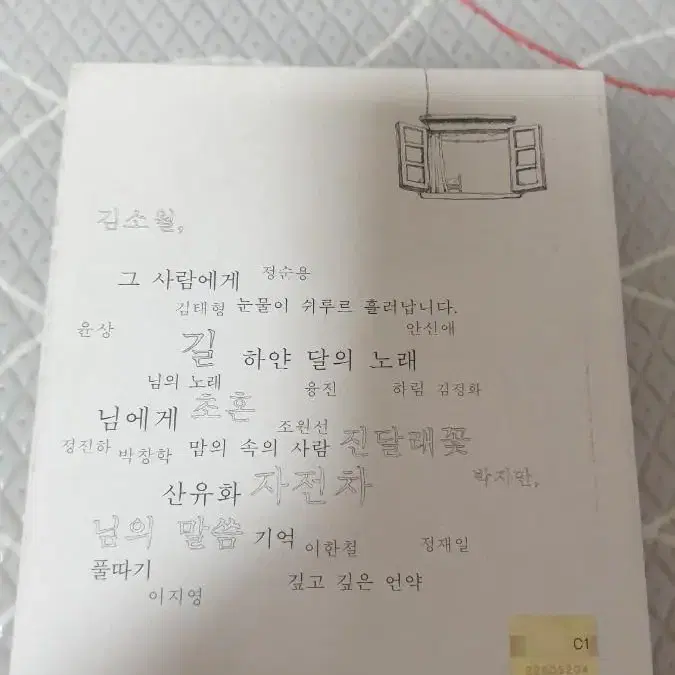 김소월,
그 사람에게 정순용
김태형 눈물이 쉬루르 흘러납니다.
윤상 안신애
길 하얀 달의 노래
님의 노래 융진 하림 김정화
님에게 초혼
조원선
정진하 박창학 맘의 속의 사람 진달래꽃
산유화 자전차 박지만,
님의 말씀 기억 이한철 정재일
풀따기
이지영 깊고 깊은 언약
C1